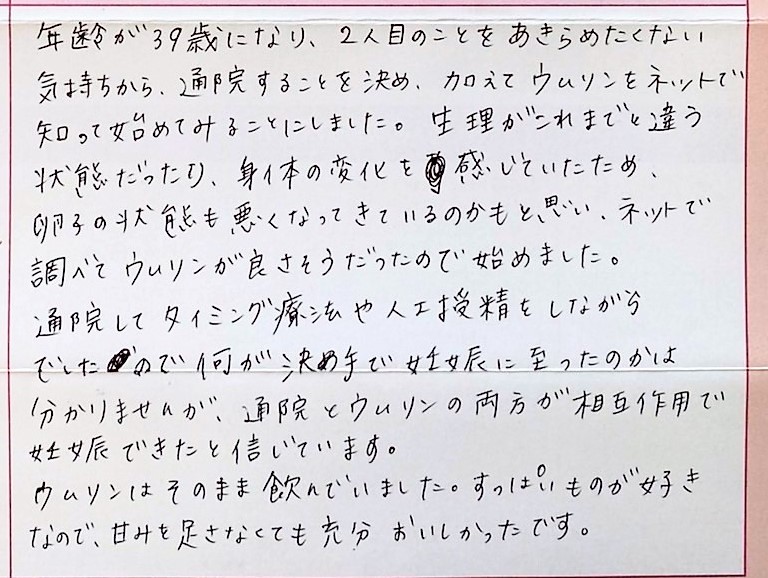 年齢が39歳になり、2人目のことをあきらめたくない
気持ちから、通院することを決め、加えてウムリンをネットで
知って始めてみることにしました。生理がこれまでと違う
状態だったり、身体の変化を感じていたため、
卵子の状態も悪くなってきているのかもと思い、ネットで
調べてウムリンが良さそうだったので始めました。
通院してタイミング療法や人工授精をしながら
でしたので何が決め手で妊娠に至ったのかは
分かりませんが、通院とウムリンの両方が相互作用で
妊娠できたと信じています。
ウムリンはそのまま飲んでいました。すっぱいものが好き
なので、甘みを足さなくても充分おいしかったです。